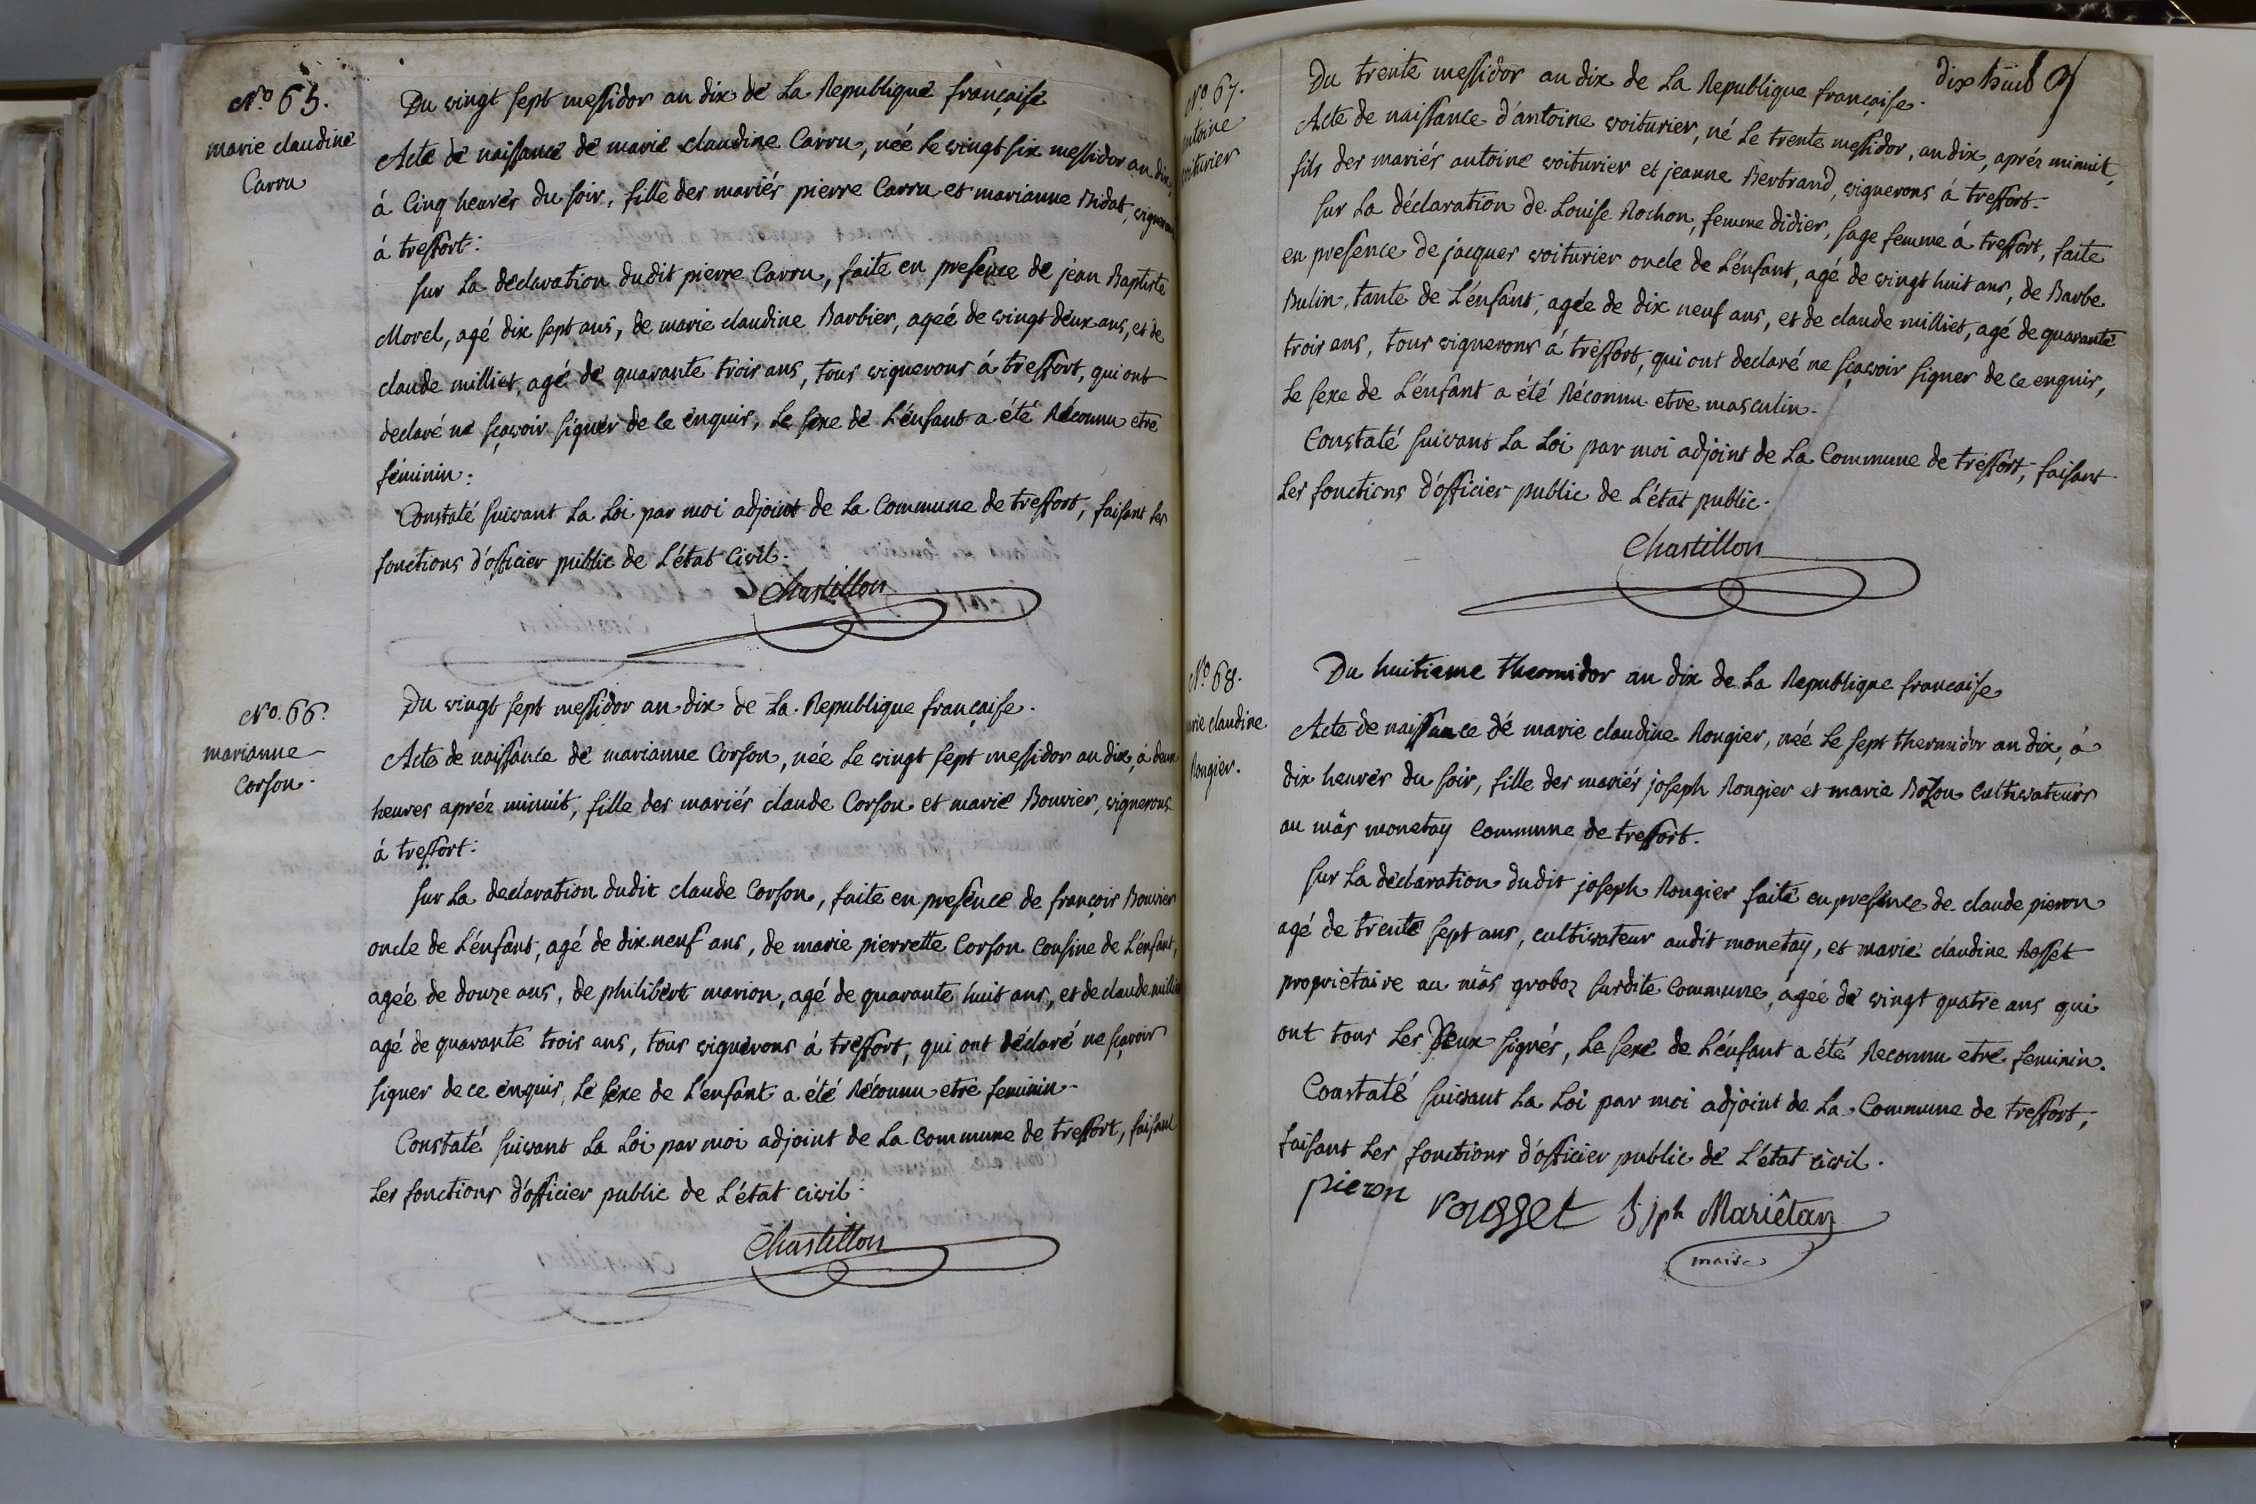 No. 65.
marie claudine
Carru
Du vingt sept messidor an dix de La Republique française
Acte de naissance de marie claudine Carru, née le vingt six messidor an dix,
á Cinq heures du soir, fille des mariés pierre Carru et marianne Bidat, vignerons
á treffort.
sur La declaration dudit pierre Carru, faite en presence de jean Baptiste
Morel, agé dix sept ans, de marie claudine Barbier, agée de vingt deux ans, et de
claude milliet, agé de quarante trois ans, tous vignerons á treffort, qui ont
declaré ne sçavoir signer de ce enquis, Le sexe de L'énfant a été Réconnu etre
féminin.
Constaté suivant La Loi par moi adjoint de La Commune de treffort, faisant Les
fonctions d'officier public de L'état Civil.
Chastillon
No. 66.
marianne
Corson.
Du vingt sept messidor an dix de La Republique française.
Acte de naissance de marianne Corson, née Le vingt sept messidor an dix, á deux
heures aprés minuit, fille des mariés claude Corson et marie Bouvier, vignerons
á treffort.
sur La declaration dudit claude Corson, faite en presence de françois Bouvier
oncle de L'énfant, agé de dix neuf ans, de marie pierrette Corson Cousine de L'énfant,
agée de douze ans, de philibert marion, agé de quarante huit ans, et de claude milliet
agé de quarante trois ans, tous vignerons á treffort, qui ont déclaré ne sçavoir
signer de ce enquis, Le sexe de L'enfant a été Réconnu etre feminin.
Constaté suivant La Loi par moi adjoint de La Commune de treffort, faisant
Les fonctions d'officier public de L'état civil.
Chastillon
dix huit
No. 67.
antoine
voiturier
Du trente messidor an dix de La Republique française.
Acte de naissance d'antoine voiturier, né Le trente messidor, an dix, aprés minuit,
fils des mariés antoine voiturier et jeanne Bertrand, vignerons á treffort.
sur La déclaration de Louise Rochon, femme didier, sage femme á treffort, faite
en presence de jacques voiturier oncle de L'énfant, agé de vingt huit ans, de Barbe
Bulin, tante de L'énfant, agée de dix neuf ans, et de claude milliet, agé de quarante
trois ans, tous vignerons á treffort, qui ont declaré ne sçavoir signer de ce enquis,
Le sexe de L'énfant a été Réconnu etre masculin.
Constaté suivant La Loi par moi adjoint de La Commune de treffort, faisant
Les fonctions d'officier public de L'état public.
Chastillon
No. 68.
marie claudine
Rongier.
Du huitieme thermidor an dix de La Republique francaise
Acte de naissance dé marie claudine Rongier, née Le sept thermidor an dix, á
dix heures du soir, fille des mariés joseph Rongier et marie Bozon Cultivateurs
au mâs monetay Commune de treffort.
sur La déclaration dudit joseph Rongier faite en presence de claude pieron
agé de trente sept ans, cultivateur audit monetay, et marie claudine Rosset
propriétaire au mâs groboz susdite Commune, agée de vingt quatre ans qui
ont tous Les Deux signés, Le sexe de L'énfant a été Reconnu etre feminin.
Constaté suivant La Loi par moi adjoint de La Commune de treffort,
faisant Les fonctions d'officier public de L'état civil.
pieron rousset J jph Mariêtan
maire